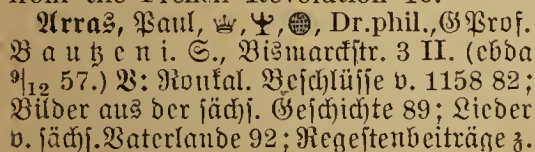 Arras, Paul, Dr.phil., GProf.
Bautzen i. S., Bismarckstr. 3 II. (ebda
9|12 57.) V: Ronkal. Beschlüsse v. 1158 82;
Bilder aus der sächs. Geschichte 89; Lieder
v. sächs. Vaterlande 92; Regestenbeiträge z.